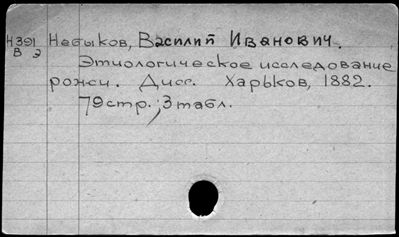 Н391 Небыков, Василий Иванович.
В Э
Этиологическое исследование
рожи. Дисс. Харьков, 1882.
79стр.; 3 табл.